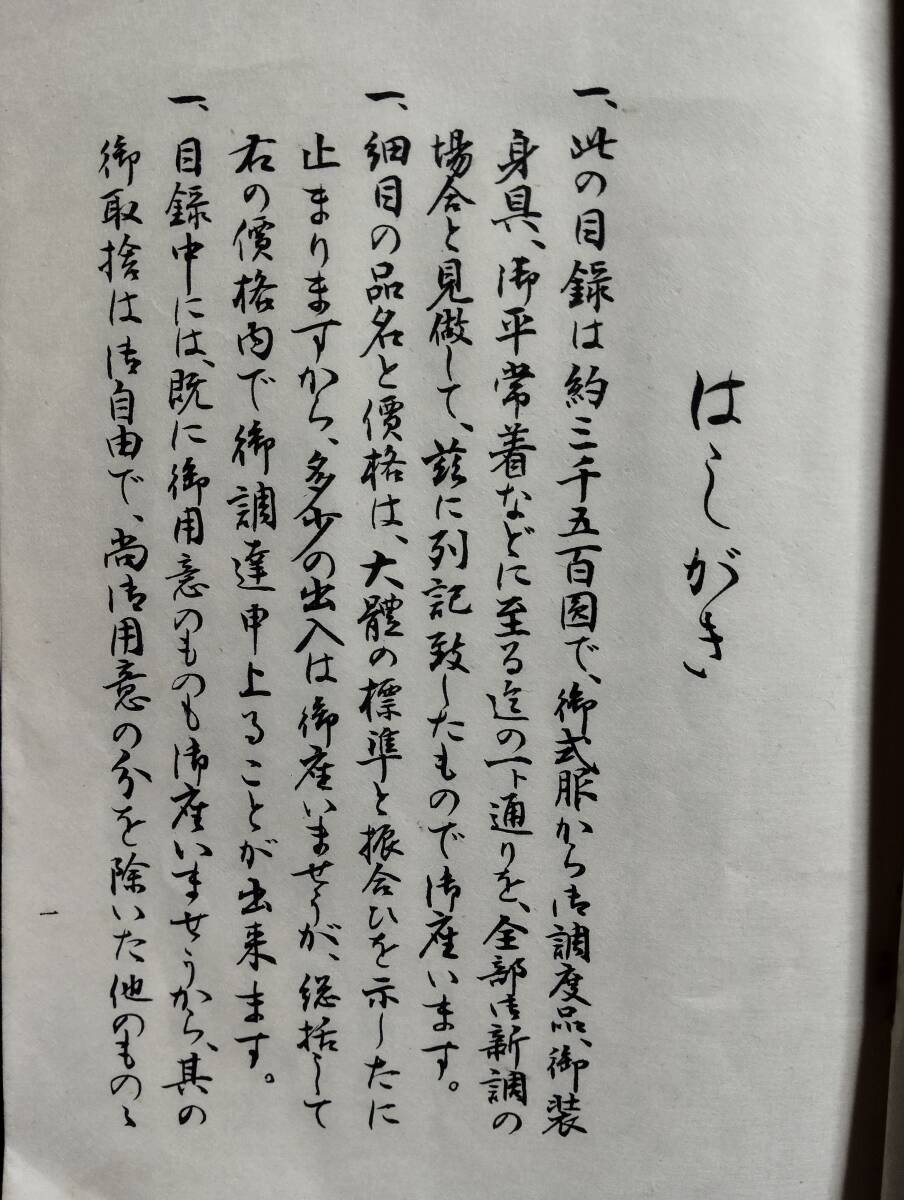 はしがき
一、此の目録は約三千五百圓で、御式服から御調度品、御装
身具、御平常着などに至る迄の一ト通りを、全部御新調の
場合と見做して、玆に列記致したもので御座います。
一、細目の品名と價格は、大體の標準と振合ひを示したに
止まりますから、多少の出入は御座いませうが、総括して
右の價格内で御調達申上ることが出来ます。
一、目録中には、既に御用意のものも御座いませうから、其の
御取捨は御自由で、尚御用意の分を除いた他のものゝ
一